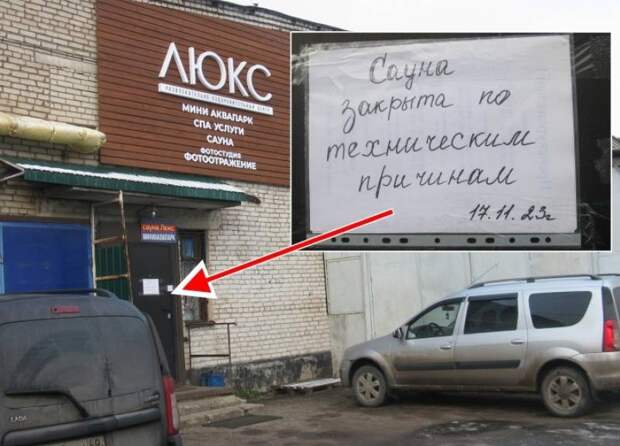 ЛЮКС
МИНИ АКВАПАРК
СПА УСЛУГИ
САУНА
ФОТОСТУДИЯ
ФОТООТРАЖЕНИЕ
сауна Люкс
МИНИАКВАПАРК
Сауна
закрыта по
техническим
причинам
17.11.23г
LADA